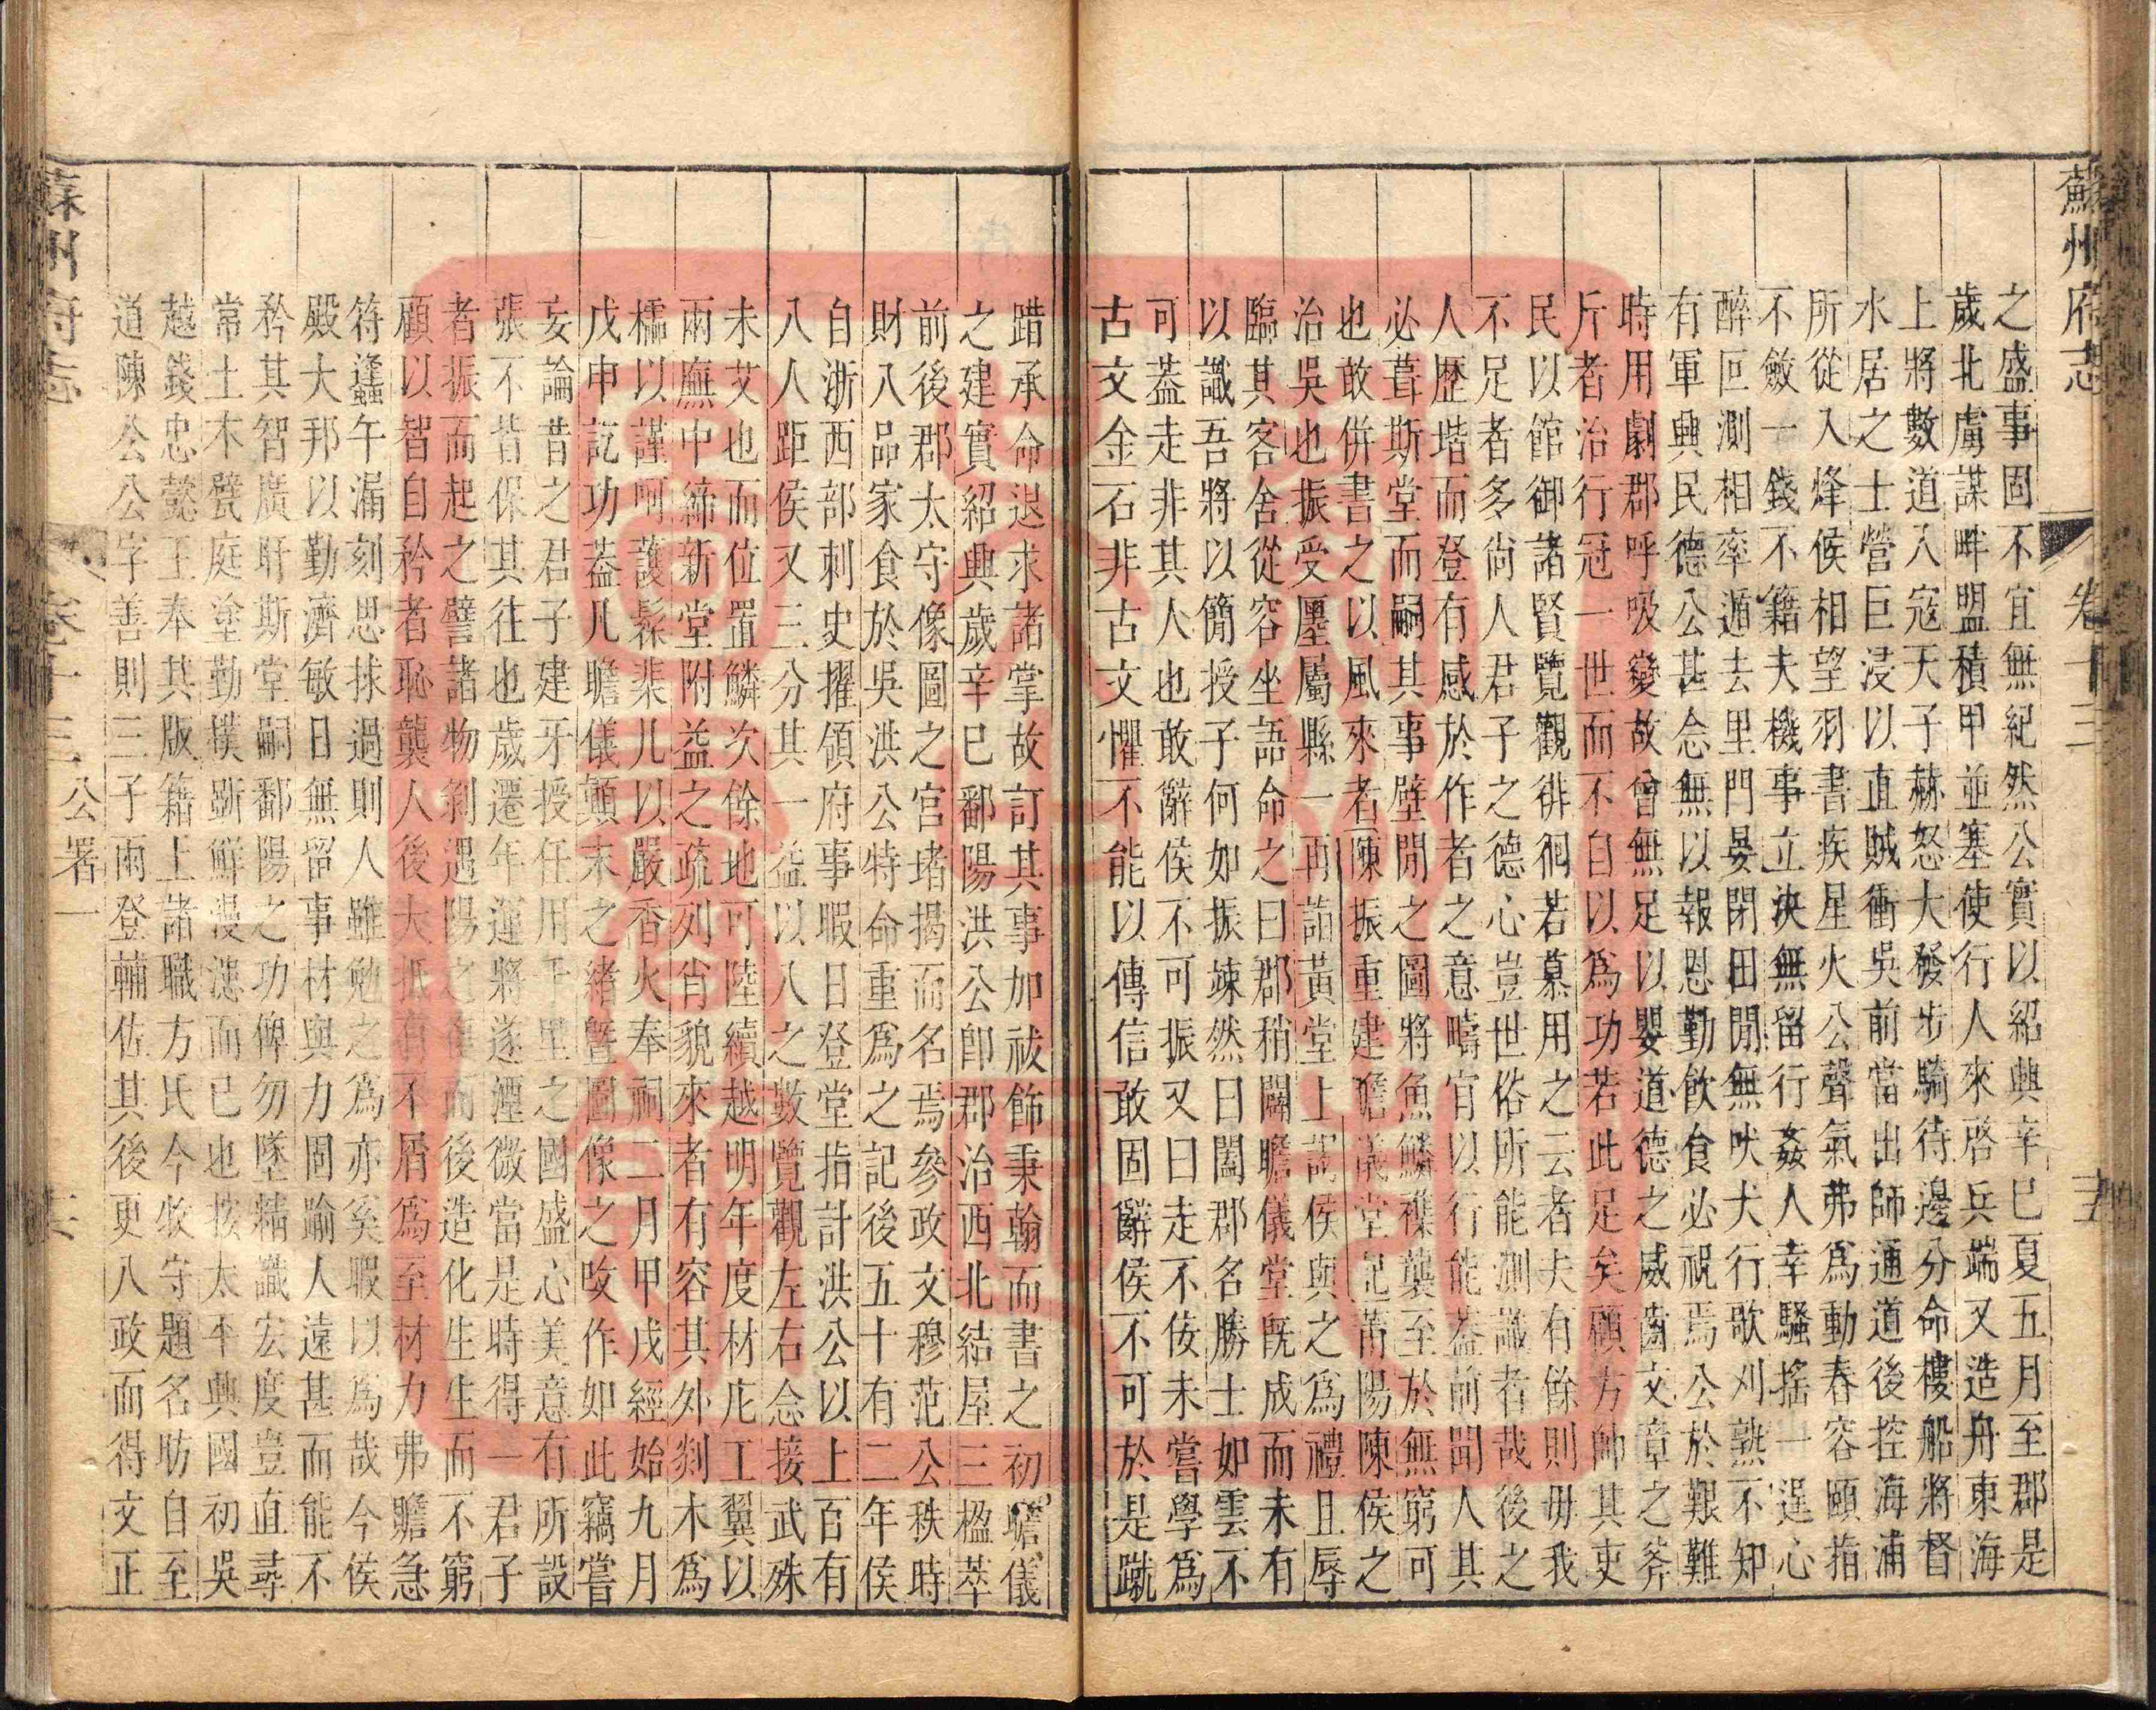 蘇州府志 卷十三
之盛事固不宜無紀然公實以紹興辛巳夏五月至郡是
歲北虜謀畔盟積甲並塞使行人來啓兵端又造舟東海
上將數道入寇天子赫怒大發步騎待邊分命樓船將督
水居之士營巨浸以直賊衝吳前當出師通道後控海浦
所從入烽候相望羽書疾星火公聲氣弗爲動春容頤指
不斂一錢不籍夫機事立決無留行姦人幸騷搖一逞心
醉叵測相率遁去里門晏閉田閒無吠犬行歌刈熟不知
有軍興民德公甚念無以報恩勤飲食必祝焉公於艱難
時用劇郡呼吸變故曾無足以嬰道德之威齒文章之斧
斤者治行冠一世而不自以爲功若此足矣顧方帥其吏
民以館御諸賢覽觀徘徊若慕用之云者夫有餘則毋我
不足者多尚人君子之德心豈世俗所能測識者哉後之
人歷堦而登有感於作者之意疇官以行能蓋前聞人其
必葺斯堂而嗣其事壁閒之圖將魚鱗襍襲至於無窮可
也敢併書之以風來者陳振重建瞻儀堂記莆陽陳侯之
治吳也振受廛屬縣一再詣黃堂上謁侯與之爲禮且辱
臨其客舍從容坐語命之曰郡稍闢瞻儀堂旣成而未有
以識吾將以簡授子何如振竦然曰闔郡名勝士如雲不
可蓋走非其人也敢辭侯不可振又曰走不佞未嘗學爲
古文金石非古文懼不能以傳信敢固辭侯不可於是蹴
踖承命退求諸掌故訂其事加祓飾秉翰而書之初瞻儀
之建實紹興歲辛巳鄱陽洪公卽郡治西北結屋三楹萃
前後郡太守像圖之宮堵揭而名焉參政文穆范公秩時
財八品家食於吳洪公特命重爲之記後五十有二年侯
自浙西部刺史擢領府事暇日登堂指計洪公以上百有
八人距侯又三分其一益以八之數覽觀左右念接武殊
未艾也而位置鱗次餘地可陸續越明年度材庀工翼以
兩廡中締新堂附益之疏列肖貌來者有容其外剡木爲
檽以謹呵護髹棐几以嚴香火奉祠二月甲戌經始九月
戊申訖功蓋凡瞻儀顛末之緒曁圖像之攷作如此竊嘗
妄論昔之君子建牙授任用千里之國盛心美意有所設
張不昔保其往也歲遷年運將遂湮微當是時得一君子
者振而起之譬諸物剝遇陽之復而後造化生生而不窮
顧以智自矜者恥襲人後大抵有不屑爲至材力弗贍急
符蠭午漏刻思捄過則人雖勉之爲亦奚暇以爲哉今侯
殿大邦以勤濟敏日無留事材與力固踰人遠甚而能不
矜其智廣旴斯堂嗣鄱陽之功俾勿墜精識宏度豈直尋
常土木甓庭塗勤樸斲鮮漫漶而已也按太平興國初吳
越錢忠懿王奉其版籍上諸職方氏今牧守題名昉自至
道陳公公字善則三子兩登輔佐其後更八政而得文正
蘇州府志 卷十三 公署一